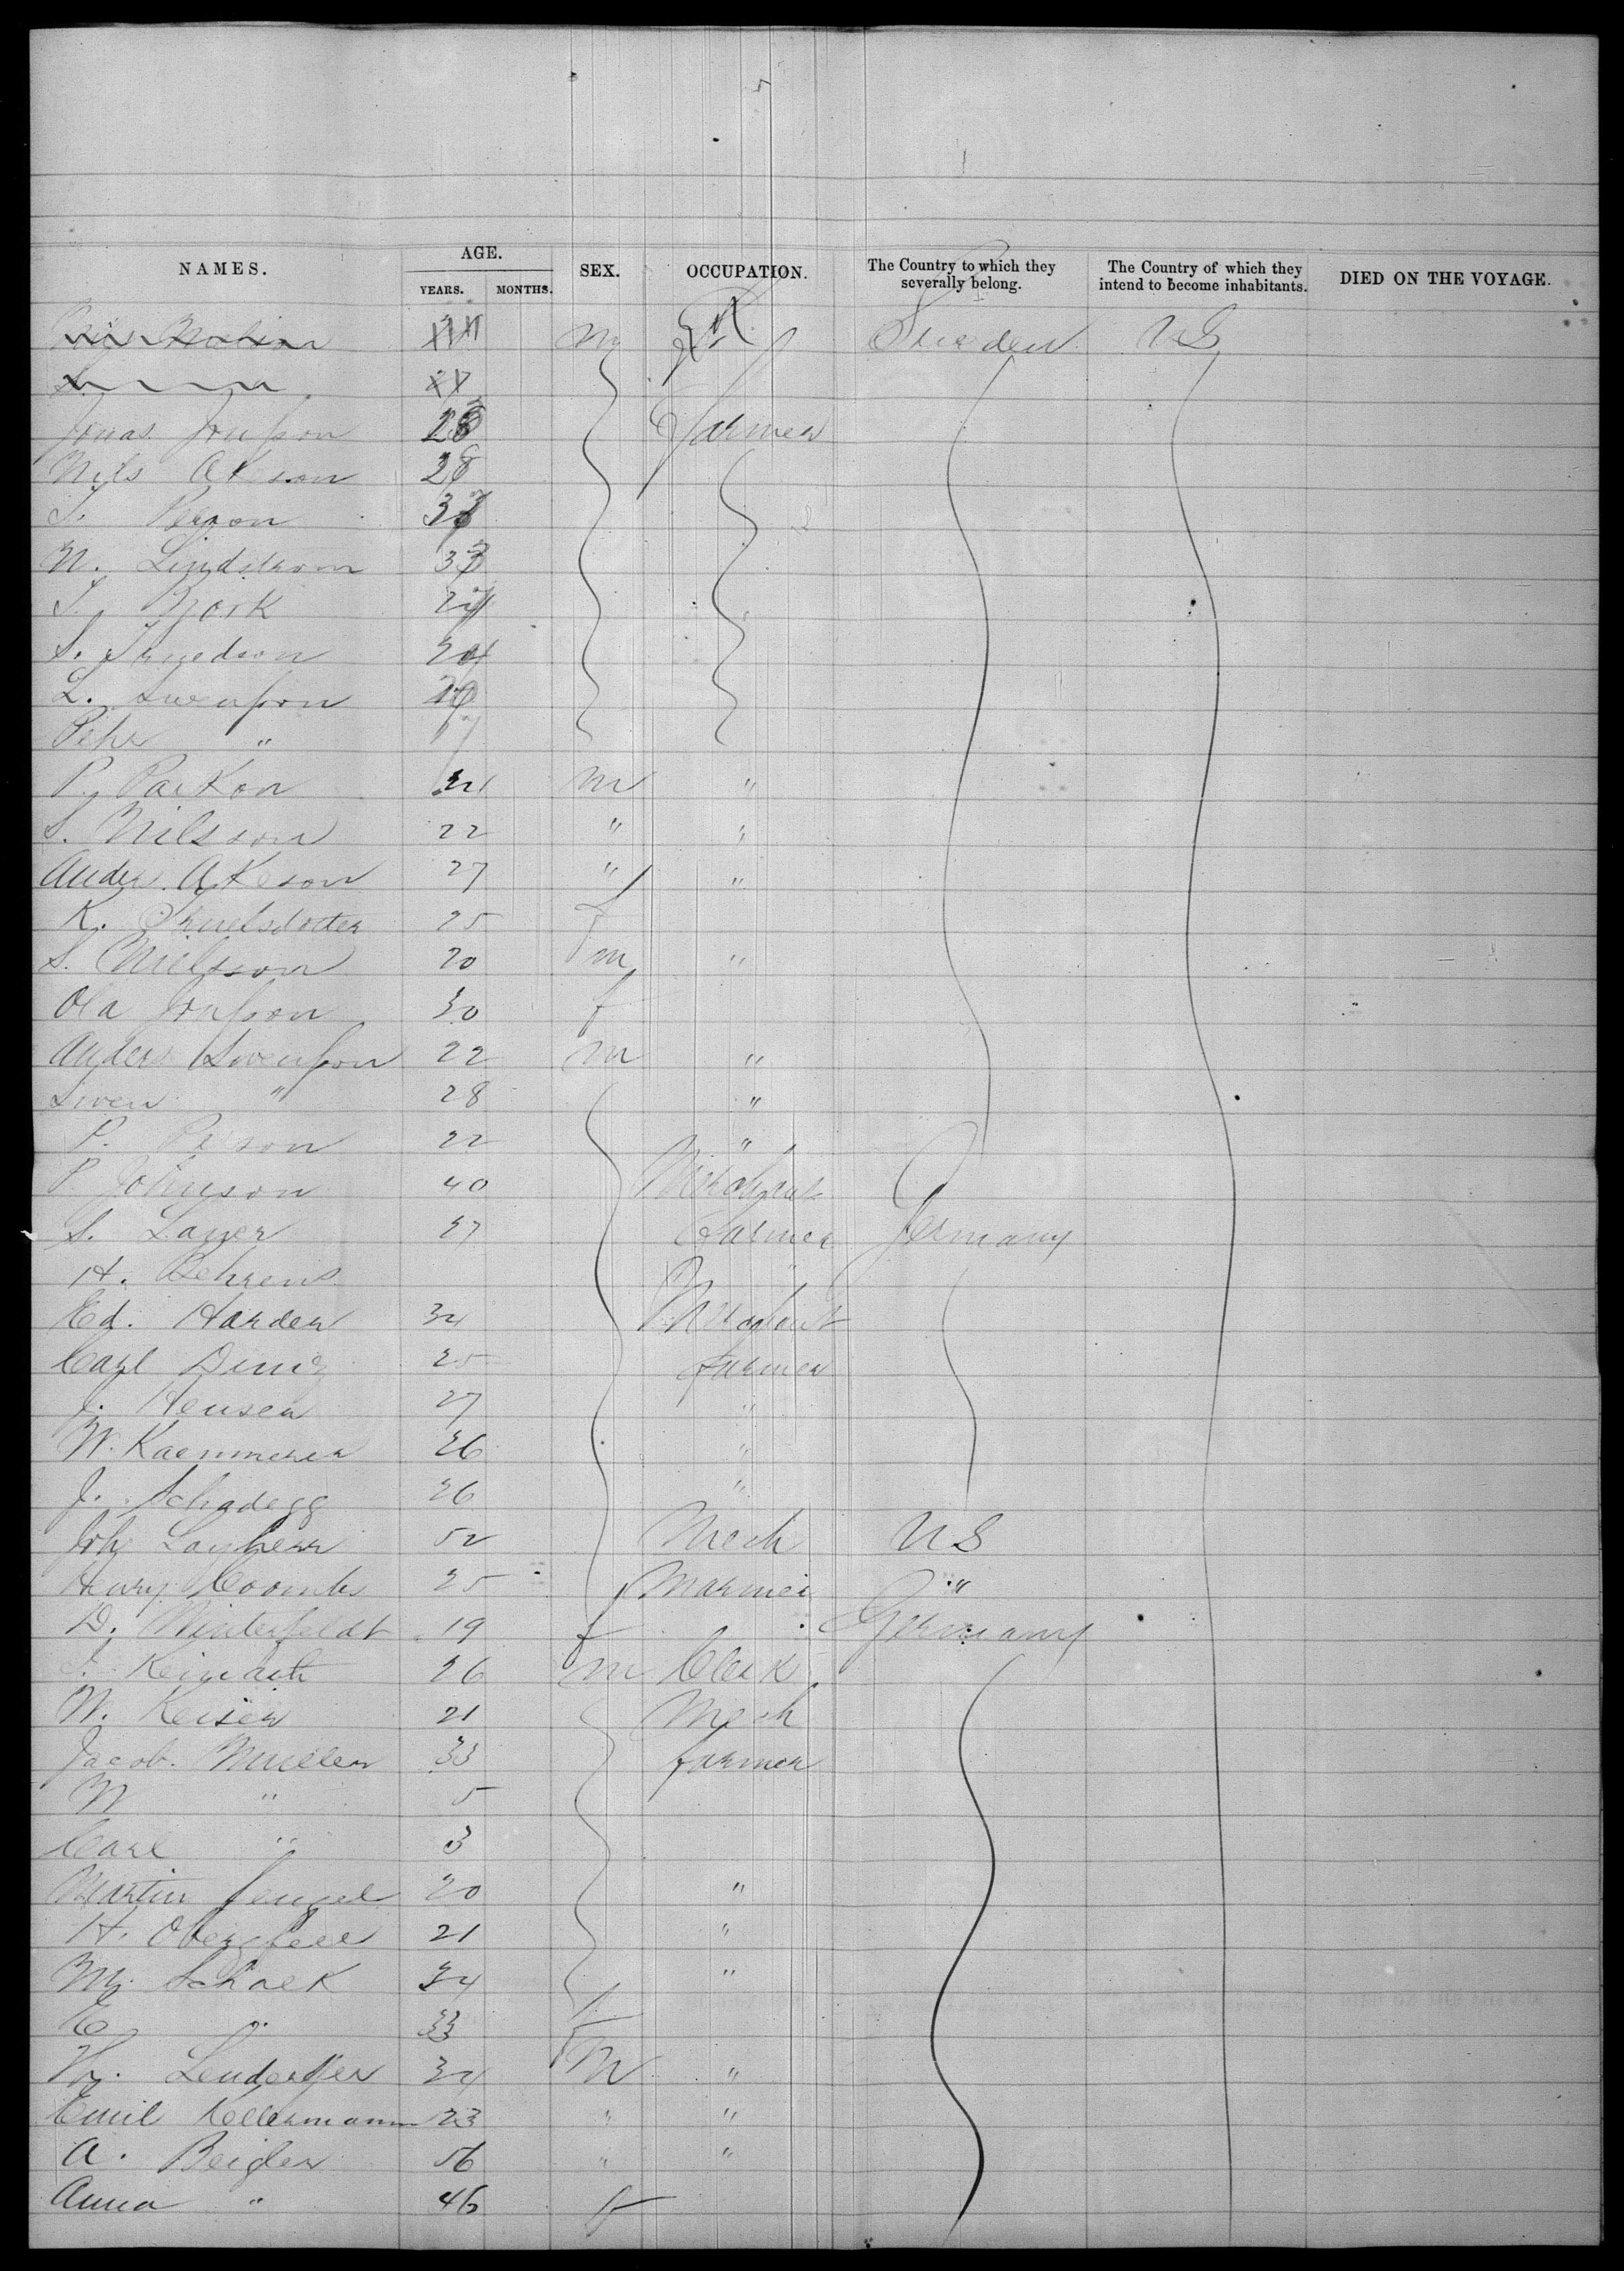 NAMES. AGE. YEARS. MONTHS. SEX. OCCUPATION. The Country to which they severally belong. The Country of which they intend to become inhabitants. DIED ON THE VOYAGE.
m Sweden US
Jonas Jonsson 28 Farmer
Nils Akeson 28
Person
N. Lindstrom 33
Bjork
S.
L. Swensson
Peher "
P. m "
S. Nilsson 22 " "
Anders Akeson 27 " "
K. 25 f
S. Nielsson 20 m "
Ola Jonsson 30 f
Anders Swensson 22 m "
Swen " 28 "
P. Person 22 "
P. Johnson 40 Merchant
S. Lauer 27 Farmer Germany
H. Behrens "
Ed. Harder 34 Merchant
Carl 25 Farmer
J. Hensen 27 "
W. Kaemmerer 26 "
J. Schadegg 26 "
Joh 52 Mech US
Henry Coombs 25 "
D. Winterfeldt 19 f Germany
26 m Clerk
W. Keiser 21 Mech
Jacob Mueller 33 farmer
" 5
Carl " 3
Martin 20 "
H. Obergfell 21 "
M. Schaek 34 "
E " 33 f
34 m "
Emil Kellermann 23 " "
A. Beigler 56 " "
Anna " 46 f